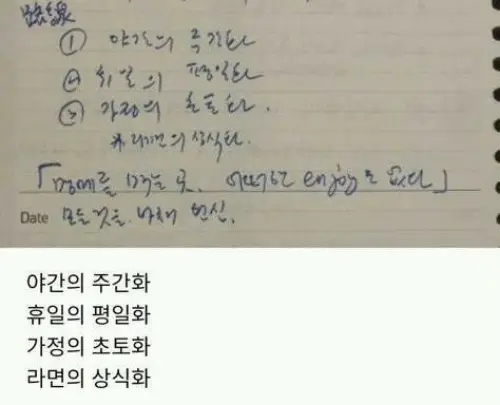 路線
① 야간의 주간화
② 휴일의 평일화
③ 가정의 초토화.
※라면의 상식화.
「명예를 먹는 곳. 어떠한 enjoy도 없다」
Date 모든 것을 바쳐 헌신.
야간의 주간화
휴일의 평일화
가정의 초토화
라면의 상식화